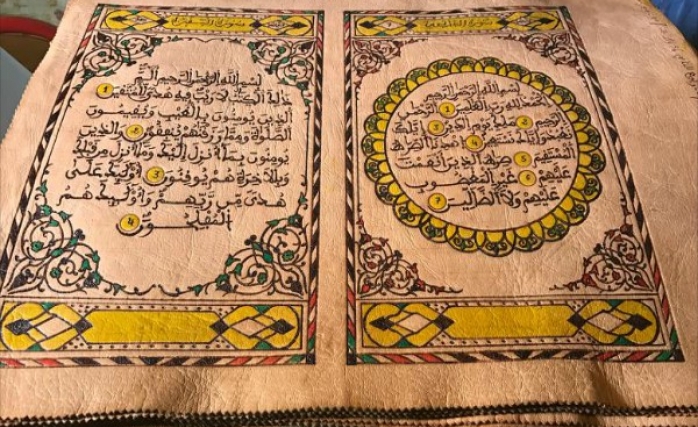 سورة الفاتحة
بسم الله الرحمن الرحيم
الحمد لله رب العلمين 1 الرحمن
الرحيم 2 ملك يوم الدين 3 إياك
نعبد وإياك نستعين 4 اهدنا الصرط
المستقيم 5 صرط الذين أنعمت
عليهم 6 غير المغضوب
عليهم ولا الضالين 7
سورة البقرة
بسم الله الرحمن الرحيم الم
ذلك الكتب لا ريب فيه هدى للمتقين 1
الذين يومنون بالغيب ويقيمون
الصلوة ومما رزقنهم ينفقون 2 والذين
يومنون بما أنزل إليك وما أنزل من قبلك
وبالاخرة هم يوقنون 3 أوليك على
هدى من ربهم وأوليك هم
المفلحون 4